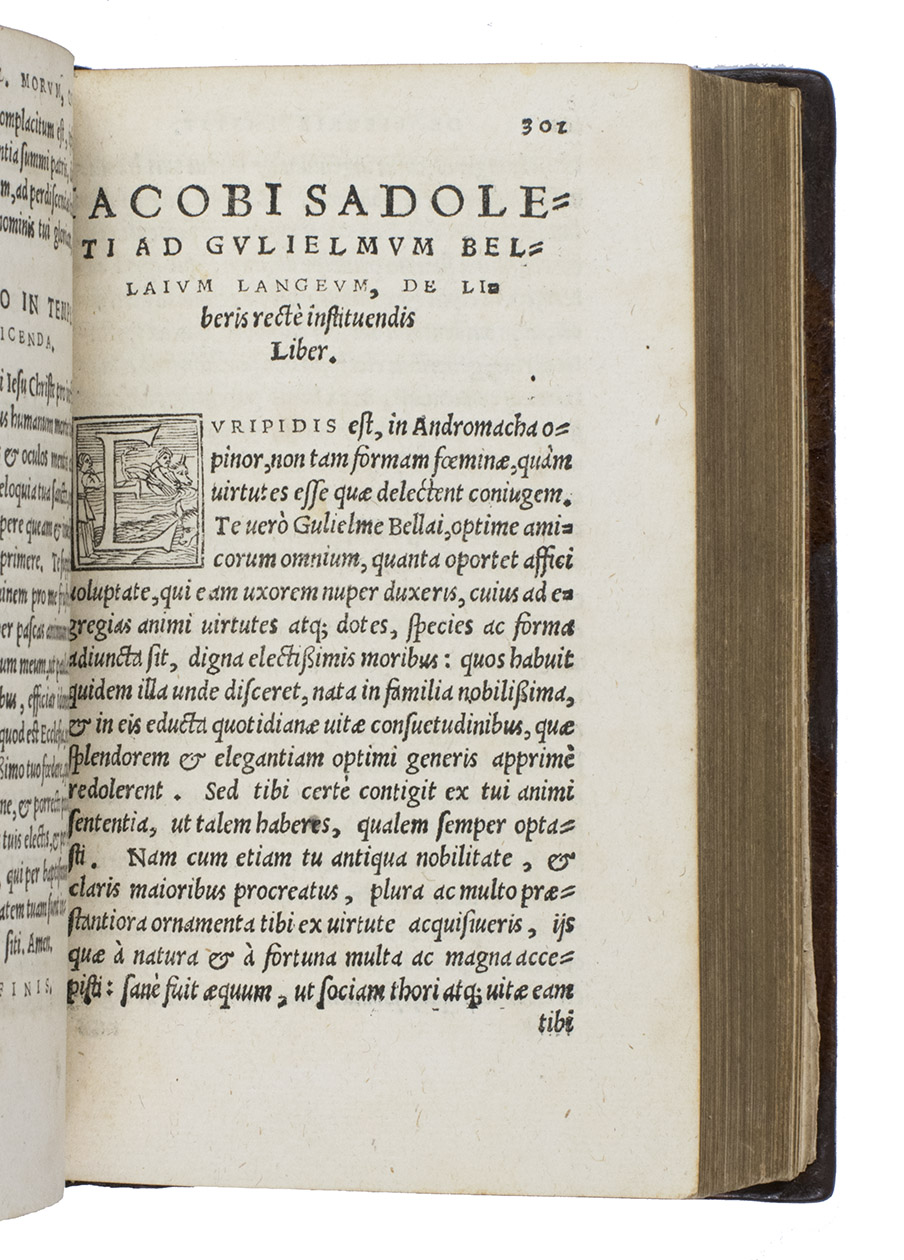 L. MORVM,
omplacitum est,
ntia summi patris,
m, ad perdiscenda
nominis tui
O IN TEMP
ICENDA.
i Iesu Christe
us humanum
& oculos mentis
eloquia tua
pere queam &
primere.
inem pro me
er pascas
um meum,
bus, efficias
quod est Ecclesiæ
ßimo tuo
ne, & porrecta
tuis electis,
, qui per
atem tuam
siti. Amen.
FINIS.
301
IACOBI SADOLE=
TI AD GVLIELMVM BEL=
LAIVM LANGEVM, DE LI=
beris rectè instituendis
Liber.
EVRIPIDIS est, in Andromacha o=
pinor, non tam formam fœminæ, quàm
uirtutes esse quæ delectent coniugem.
Te uerò Gulielme Bellai, optime ami=
corum omnium, quanta oportet affici
uoluptate, qui eam uxorem nuper duxeris, cuius ad e=
gregias animi uirtutes atq; dotes, species ac forma
adiuncta sit, digna electißimis moribus: quos habuit
quidem illa unde disceret, nata in familia nobilißima,
& in eis educta quotidianæ uitæ consuetudinibus, quæ
splendorem & elegantiam optimi generis apprimè
redolerent. Sed tibi certè contigit ex tui animi
sententia, ut talem haberes, qualem semper opta=
sti. Nam cum etiam tu antiqua nobilitate, &
claris maioribus procreatus, plura ac multo præ=
stantiora ornamenta tibi ex uirtute acquisiueris, ijs
quæ à natura & à fortuna multa ac magna acce=
pisti: sanè fuit æquum, ut sociam thori atq; uitæ eam
tibi